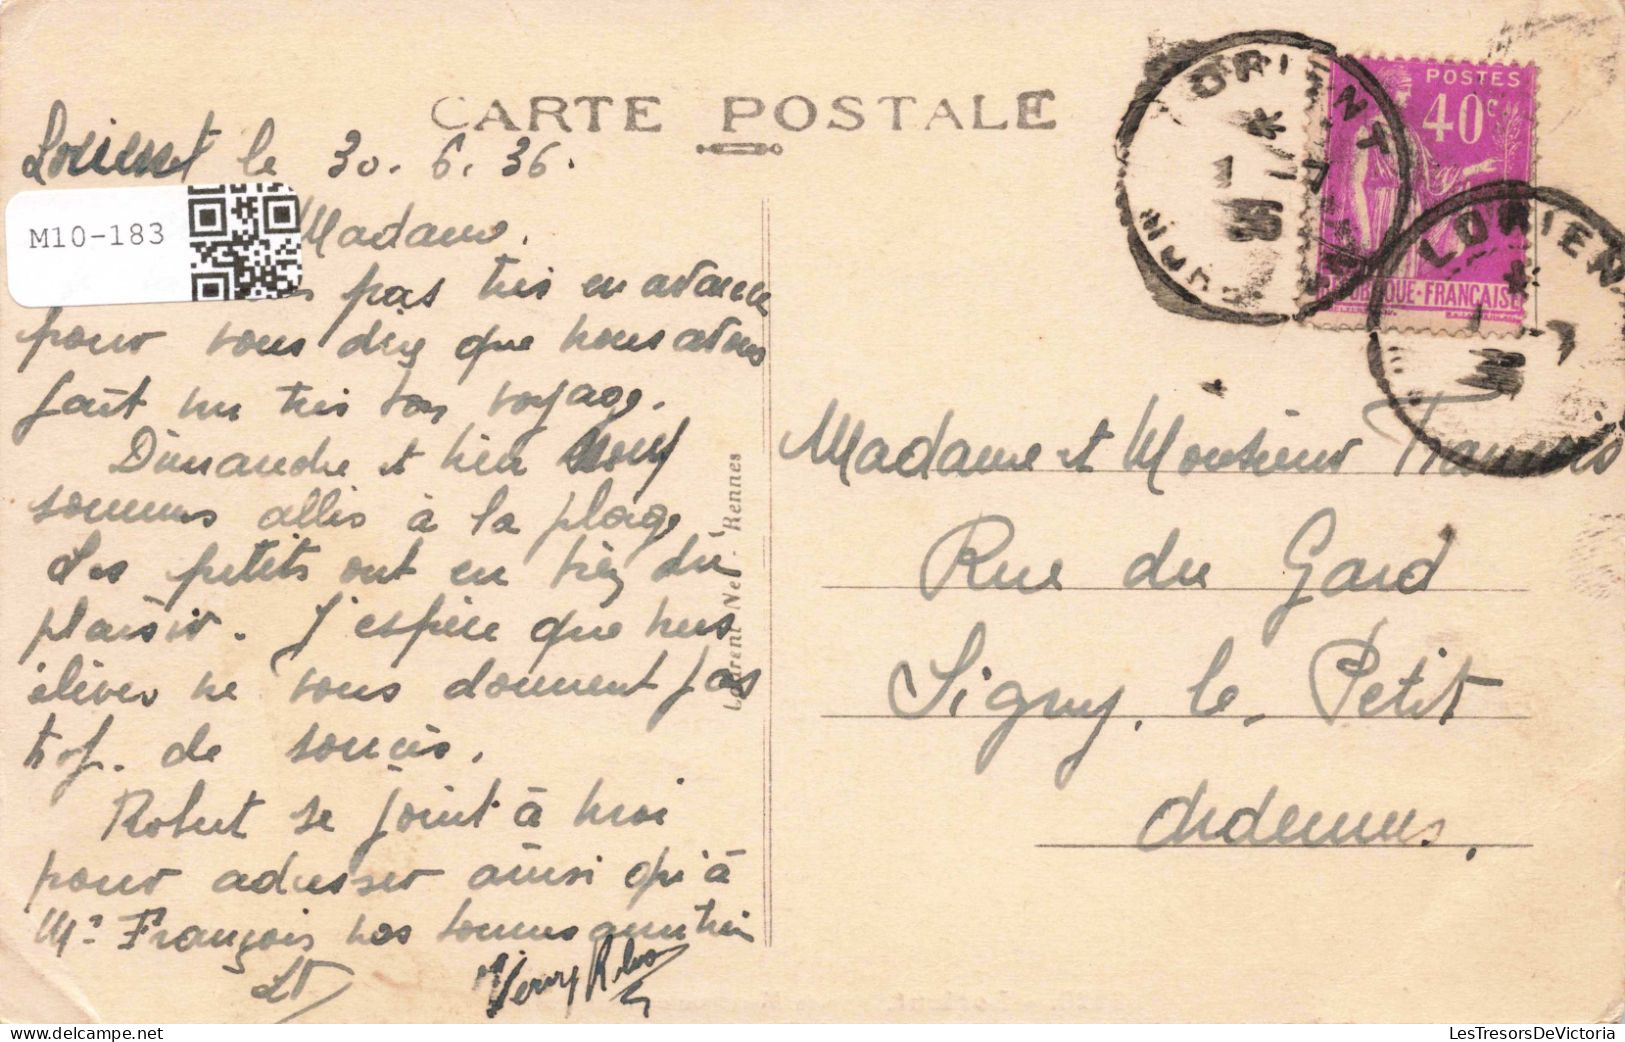 CARTE POSTALE
Lorient le 30. 6. 36.
M10-183
Madame,
pas très en avance
pour vous dire que nous avons
fait un très bon voyage.
Dimanche et hier nous
sommes allés à la plage
Les petits ont eu bien du
plaisir. J'espère que nos
élèves ne vous donnent pas
trop de soucis.
Robert se joint à moi
pour adresser ainsi qu'à
Mr François nos bonnes amitiés
Laurent Nel - Rennes
POSTES
40c
REPUBLIQUE-FRANÇAISE
LORIENT
LORIENT
Madame et Monsieur François
Rue du Gard
Signy. le. Petit
Ardennes.
LesTresorsDeVictoria.com